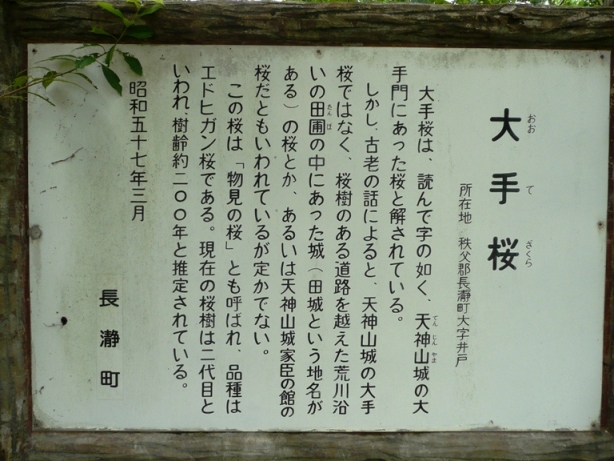 大手桜
所在地 秩父郡長瀞町大字井戸
大手桜は、読んで字の如く、天神山城の大
手門にあった桜と解されている。
しかし、古老の話によると、天神山城の大手
桜ではなく、桜樹のある道路を越えた荒川沿
いの田圃の中にあった城(田城という地名が
ある)の桜とか、あるいは天神山城家臣の館の
桜だともいわれているが定かでない。
この桜は「物見の桜」とも呼ばれ、品種は
エドヒガン桜である。現在の桜樹は二代目と
いわれ、樹齢約二〇〇年と推定されている。
昭和五十七年三月
長瀞町